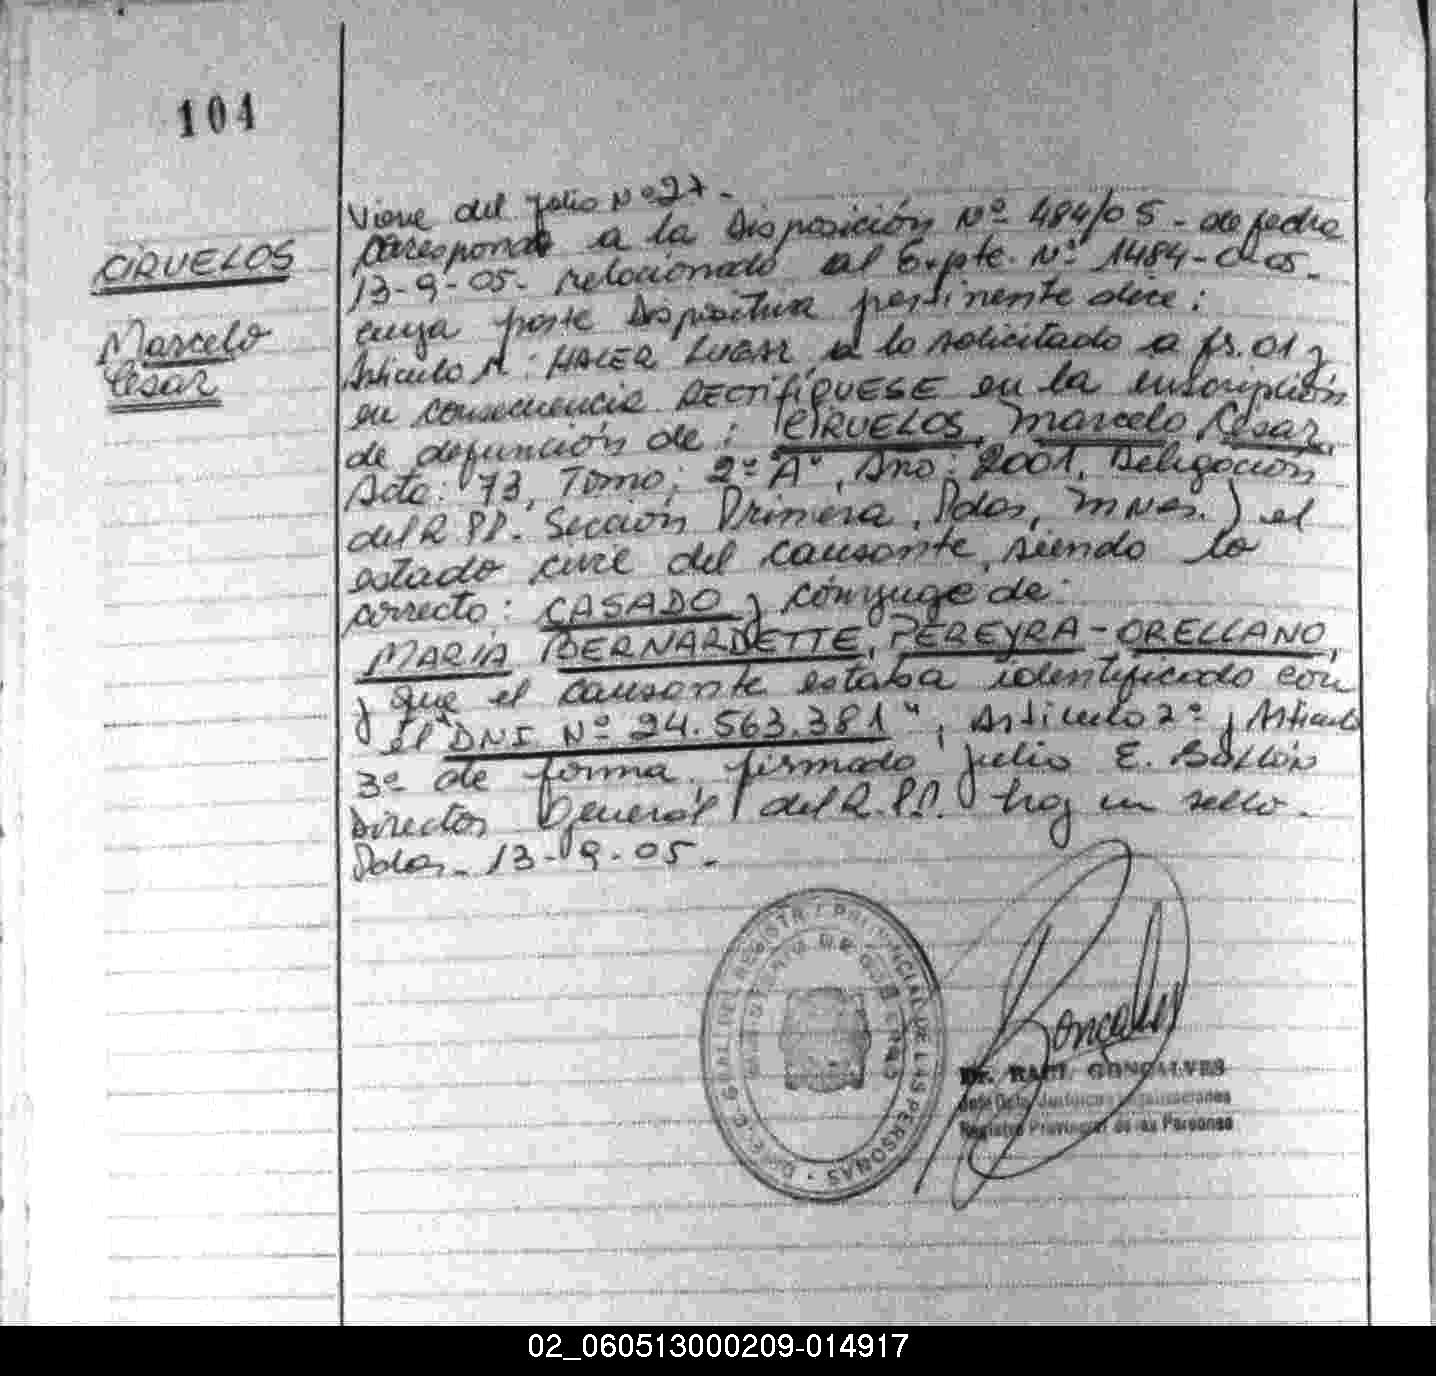 104
CIRUELOS
Marcelo
Cesar
Viene del folio Nº 27.-
corresponde a la Disposición Nº 484/05 - de fecha
13-9-05. relacionado al Expte. Nº 1484-0-05.
cuya parte Dispositiva pertinente dice:
Artículo 1º: HACER LUGAR a lo solicitado a fs. 01 y
en consecuencia RECTIFÍQUESE en la inscripción
de defunción de: CIRUELOS, Marcelo César,
Acta: 73, Tomo: 2º "A", Año: 2001, Delegación
del R.P.P. Sección Primera, Pdas, Mnes.) el
estado civil del causante, siendo lo
correcto: CASADO y cónyuge de:
MARIA BERNARDETTE, PEREYRA-ORELLANO,
y que el causante estaba identificado con
el DNI Nº 24.563.381", Artículo 2º y Artículo
3º de forma, firmado Julio E.
Director General del R.P.P. hay un sello.
Pdas. 13-9-05.-
DIREC. GRAL. DEL REGISTRO PROVINCIAL DE LAS PERSONAS
MINISTERIO DE GOBIERNO
Gonçalves
Dr. RAUL GONÇALVES
Registro Provincial de las Personas
02_060513000209-014917